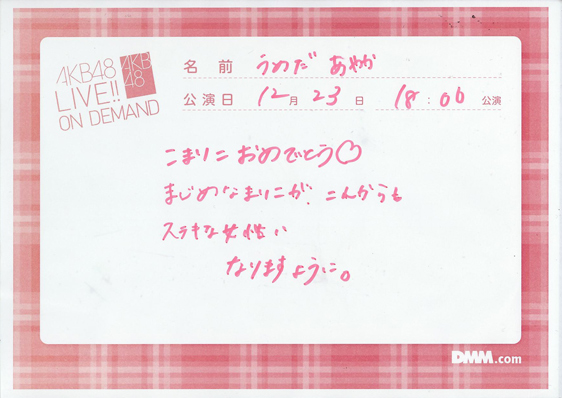 AKB48
LIVE!!
ON DEMAND
AKB
48
名前 うめだ あやか
公演日 12月23日 18:00 公演
こまりこ おめでとう♡
まじめなまりこが、こんからも
ステキな女性い
なりますように。
DMM.com